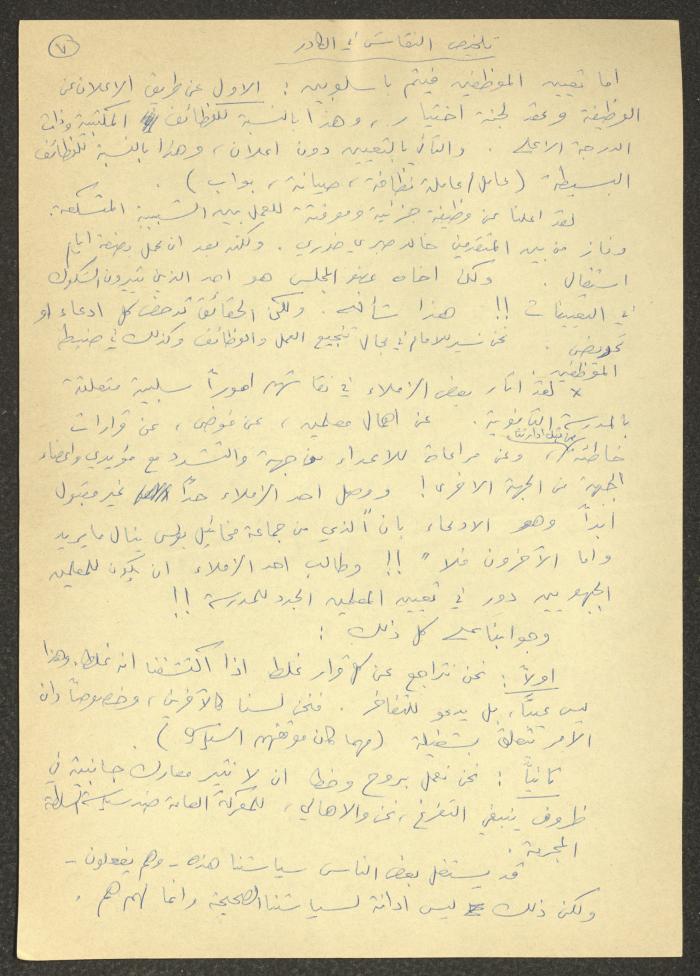 ٧
تلخيص النقاش في الكادر
اما تعيين الموظفين فيتم باسلوبين : الاول عن طريق الاعلان عن
الوظيفة وعقد لجنة اختيار ، وهذا بالنسبة للوظائف المكتبية وذات
الدرجة الاعلى . والثاني بالتعيين دون اعلان ، وهذا بالنسبة للوظائف
البسيطة ( عامل/عاملة نظافة ، صيانة ، بواب ) .
لقد اعلنا عن وظيفة جزئية ومؤقتة للعمل بين الشبيبة المتسكعة .
وفاز من بين المتقدمين خالد صبري صدري . ولكنه بعد ان عمل بضعة ايام
استقال . ولكن اخاه عضو المجلس هو احد الذين يثيرون الشكوك
في التعيينات !! هذا شأنه . ولكن الحقائق تدحض كل ادعاء او
تحريض . نحن نسير للامام في مجال تنجيع العمل والوظائف وكذلك في ضبط
الموظفين .
x لقد اثار بعض الزملاء في نقاشهم اموراً سلبية متعلقة
بالمدرسة الثانوية . عن اهمال معلمين ، عن فوضى ، عن قرارات
خاطئة من قبل ادارتنا ، وعن مراعاة للاعداء من جهة والتشدد مع مؤيدي واعضاء
الجبهة من الجهة الاخرى ! ووصل احد الزملاء حداً غير مقبول
ابداً وهو الادعاء بان "الذي من جماعة مخائيل بولس ينال ما يريد
واما الآخرون فلا" !! وطالب احد الزملاء ان يكون للمعلمين
الجبهويين دور في تعيين المعلمين الجدد للمدرسة !!
وجوابنا على كل ذلك :
اولاً : نحن نتراجع عن كل قرار غلط اذا اكتشفنا انه غلط . وهذا
ليس عيباً ، بل يدعو للتفاخر . فنحن لسنا كالآخرين ، وخصوصاً وان
الامر تتعلق بشغيلة ( مهما كان موقفهم السياسي ) .
ثانياً : نحن نعمل بروح وخط ان لا نثير معارك جانبية في
ظروف ينبغي التفرغ ، نحن والاهالي ، للمعركة العامة ضد سياسة السلطة
المجرمة .
قد يستغل بعض الناس سياستنا هذه - وهم يفعلون -
ولكن ذلك ليس ادانة لسياستنا الصحيحة وانما لهم هم .